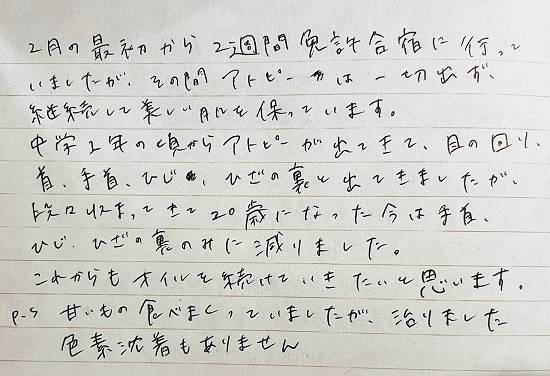 2月の最初から2週間免許合宿に行って
いましたが、その間アトピーは一切出ず、
継続して美しい肌を保っています。
中学1年の頃からアトピーが出てきて、目の回り、
首、手首、ひじ、ひざの裏と出てきましたが、
段々収まってきて20歳になった今は手首、
ひじ、ひざの裏のみに減りました。
これからもオイルを続けていきたいと思います。
P.S 甘いもの食べまくっていましたが、治りました
色素沈着もありません